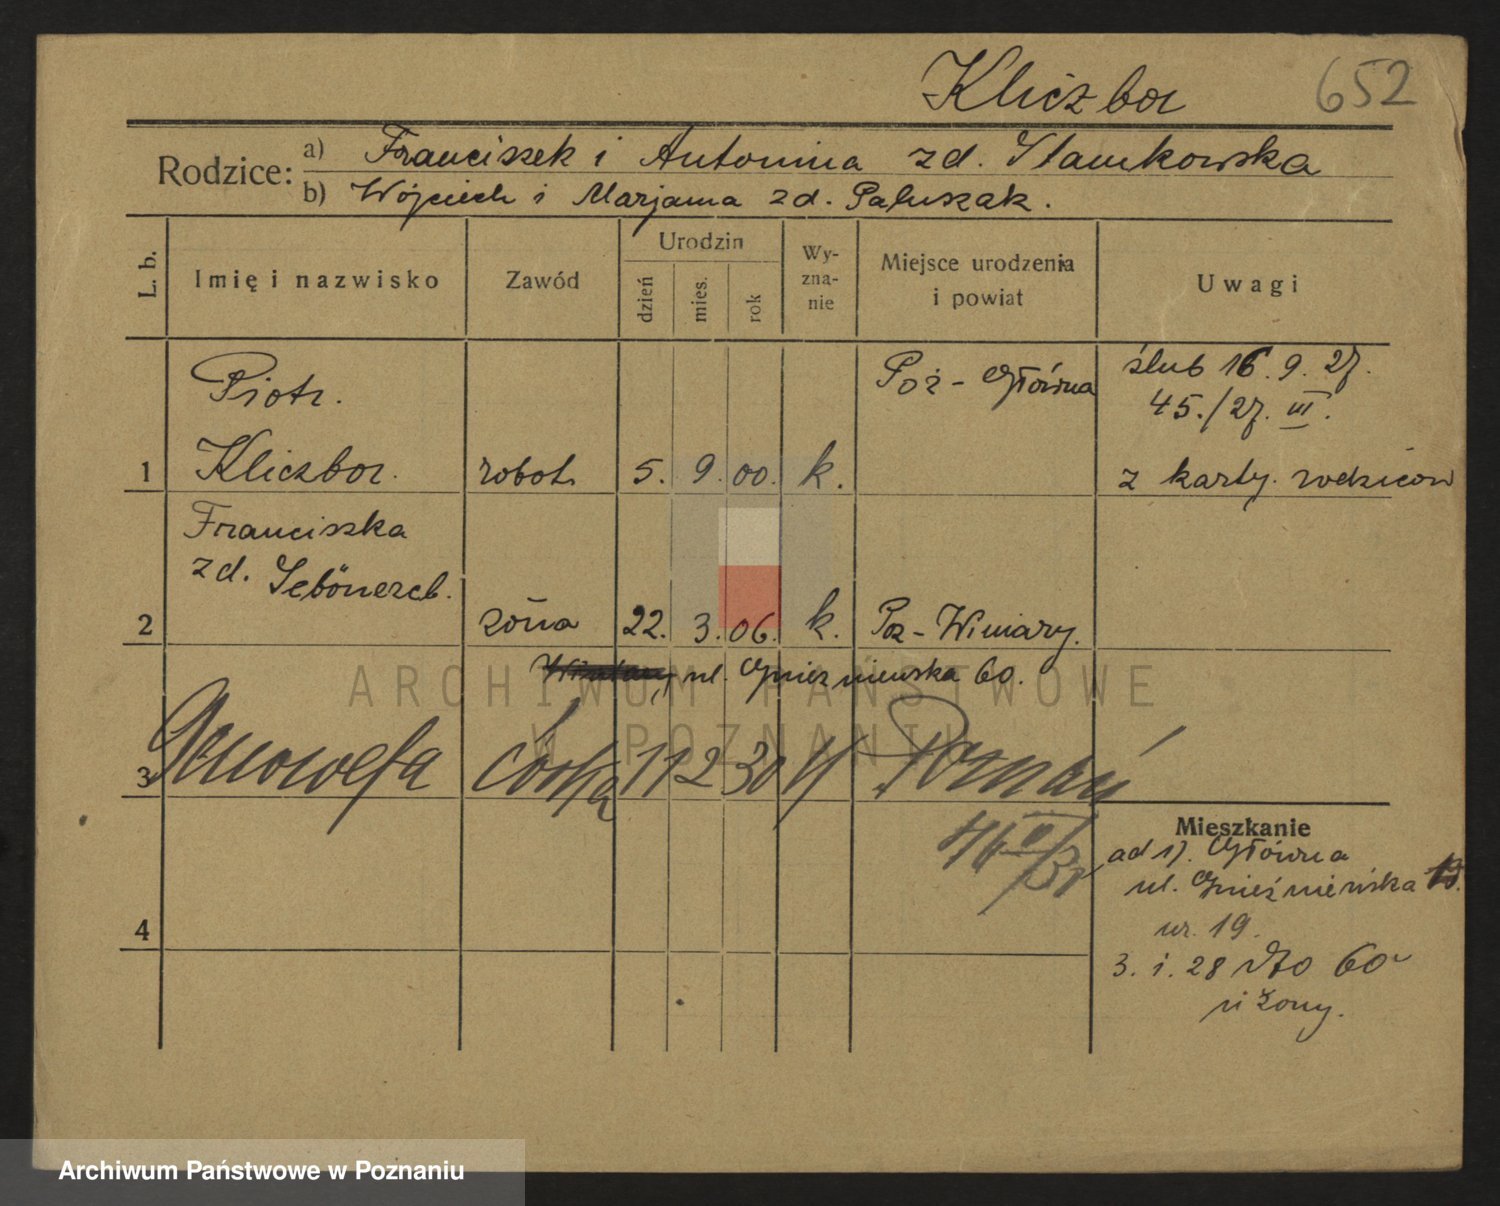 Kliczbor 652
Rodzice: a) Franciszek i Antonina zd. Stamkowska
b) Wojciech i Marjanna zd. Paluszak.
L. b. Imię i nazwisko Zawód Urodzin dzień mies. rok Wy-zna-nie Miejsce urodzenia i powiat Uwagi
Piotr. Poz - Główna ślub 16. 9. 27.
45./27. III.
1 Kliczbor. robot. 5. 9. 00. k. z karty rodziców
Franciszka
zd.
2 żona 22. 3. 06. k. Poz - Winiary.
ul. Gnieźnieńska 60.
3 Genowefa córka 11 2 30 k Poznań
Mieszkanie
ad 1). Główna
ul. Gnieźnieńska
4 nr. 19.
3. i. 28 dto 60
u żony.
ARCHIWUM PAŃSTWOWE
W POZNANIU
Archiwum Państwowe w Poznaniu